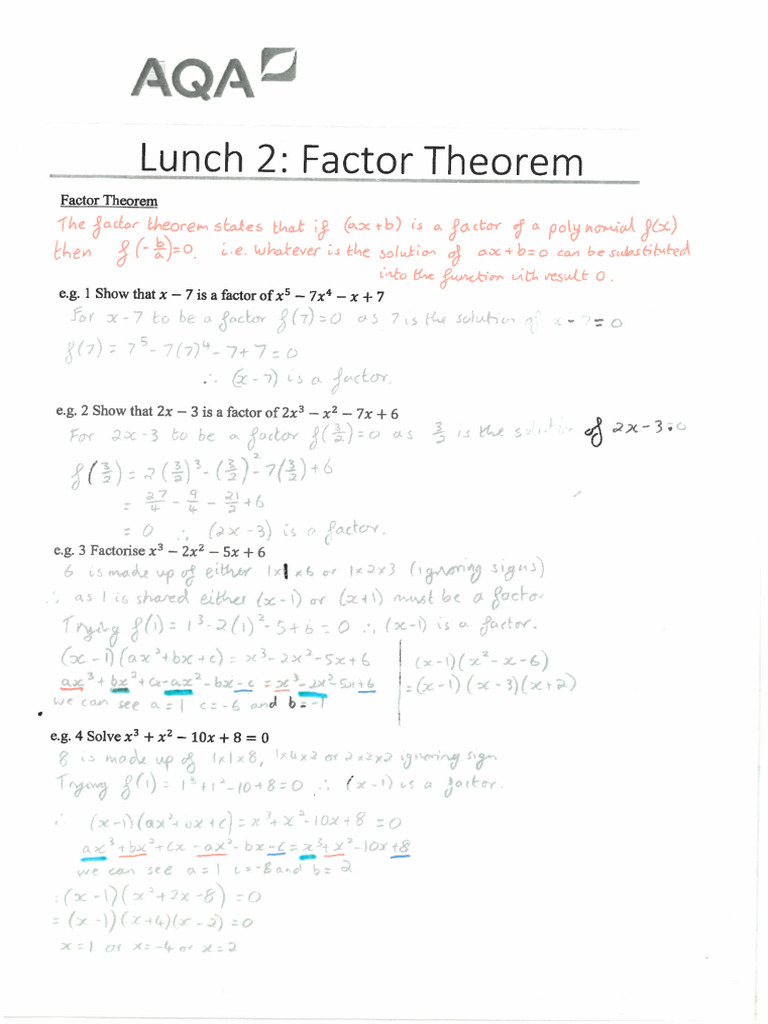 AQA
Lunch 2: Factor Theorem
Factor Theorem
The factor theorem states that if (ax+b) is a factor of a polynomial f(x)
then f(-b/a)=0. i.e. whatever is the solution of ax+b=0 can be substituted
into the function with result 0.
e.g. 1 Show that x − 7 is a factor of x⁵ − 7x⁴ − x + 7
For x-7 to be a factor f(7)=0 as 7 is the solution of x-7=0
f(7) = 7⁵ - 7(7)⁴ - 7 + 7 = 0
∴ (x-7) is a factor.
e.g. 2 Show that 2x − 3 is a factor of 2x³ − x² − 7x + 6
For 2x-3 to be a factor f(3/2)=0 as 3/2 is the solution of 2x-3=0
f(3/2) = 2(3/2)³ - (3/2)² - 7(3/2) + 6
= 27/4 - 9/4 - 21/2 + 6
= 0 ∴ (2x-3) is a factor.
e.g. 3 Factorise x³ − 2x² − 5x + 6
6 is made up of either 1x1x6 or 1x2x3 (ignoring signs)
∴ as 1 is shared either (x-1) or (x+1) must be a factor
Trying f(1) = 1³-2(1)²-5+6 = 0 ∴ (x-1) is a factor.
(x-1)(ax²+bx+c) = x³-2x²-5x+6
ax³+bx²+cx-ax²-bx-c = x³-2x²-5x+6
we can see a=1 c=-6 and b=-1
(x-1)(x²-x-6)
=(x-1)(x-3)(x+2)
e.g. 4 Solve x³ + x² − 10x + 8 = 0
8 is made up of 1x1x8, 1x4x2 or 2x2x2 ignoring sign
Trying f(1) = 1³+1²-10+8=0 ∴ (x-1) is a factor.
∴ (x-1)(ax²+bx+c) = x³+x²-10x+8 = 0
ax³+bx²+cx-ax²-bx-c = x³+x²-10x+8
we can see a=1 c=-8 and b=2
=(x-1)(x²+2x-8) = 0
=(x-1)(x+4)(x-2) = 0
x=1 or x=-4 or x=2